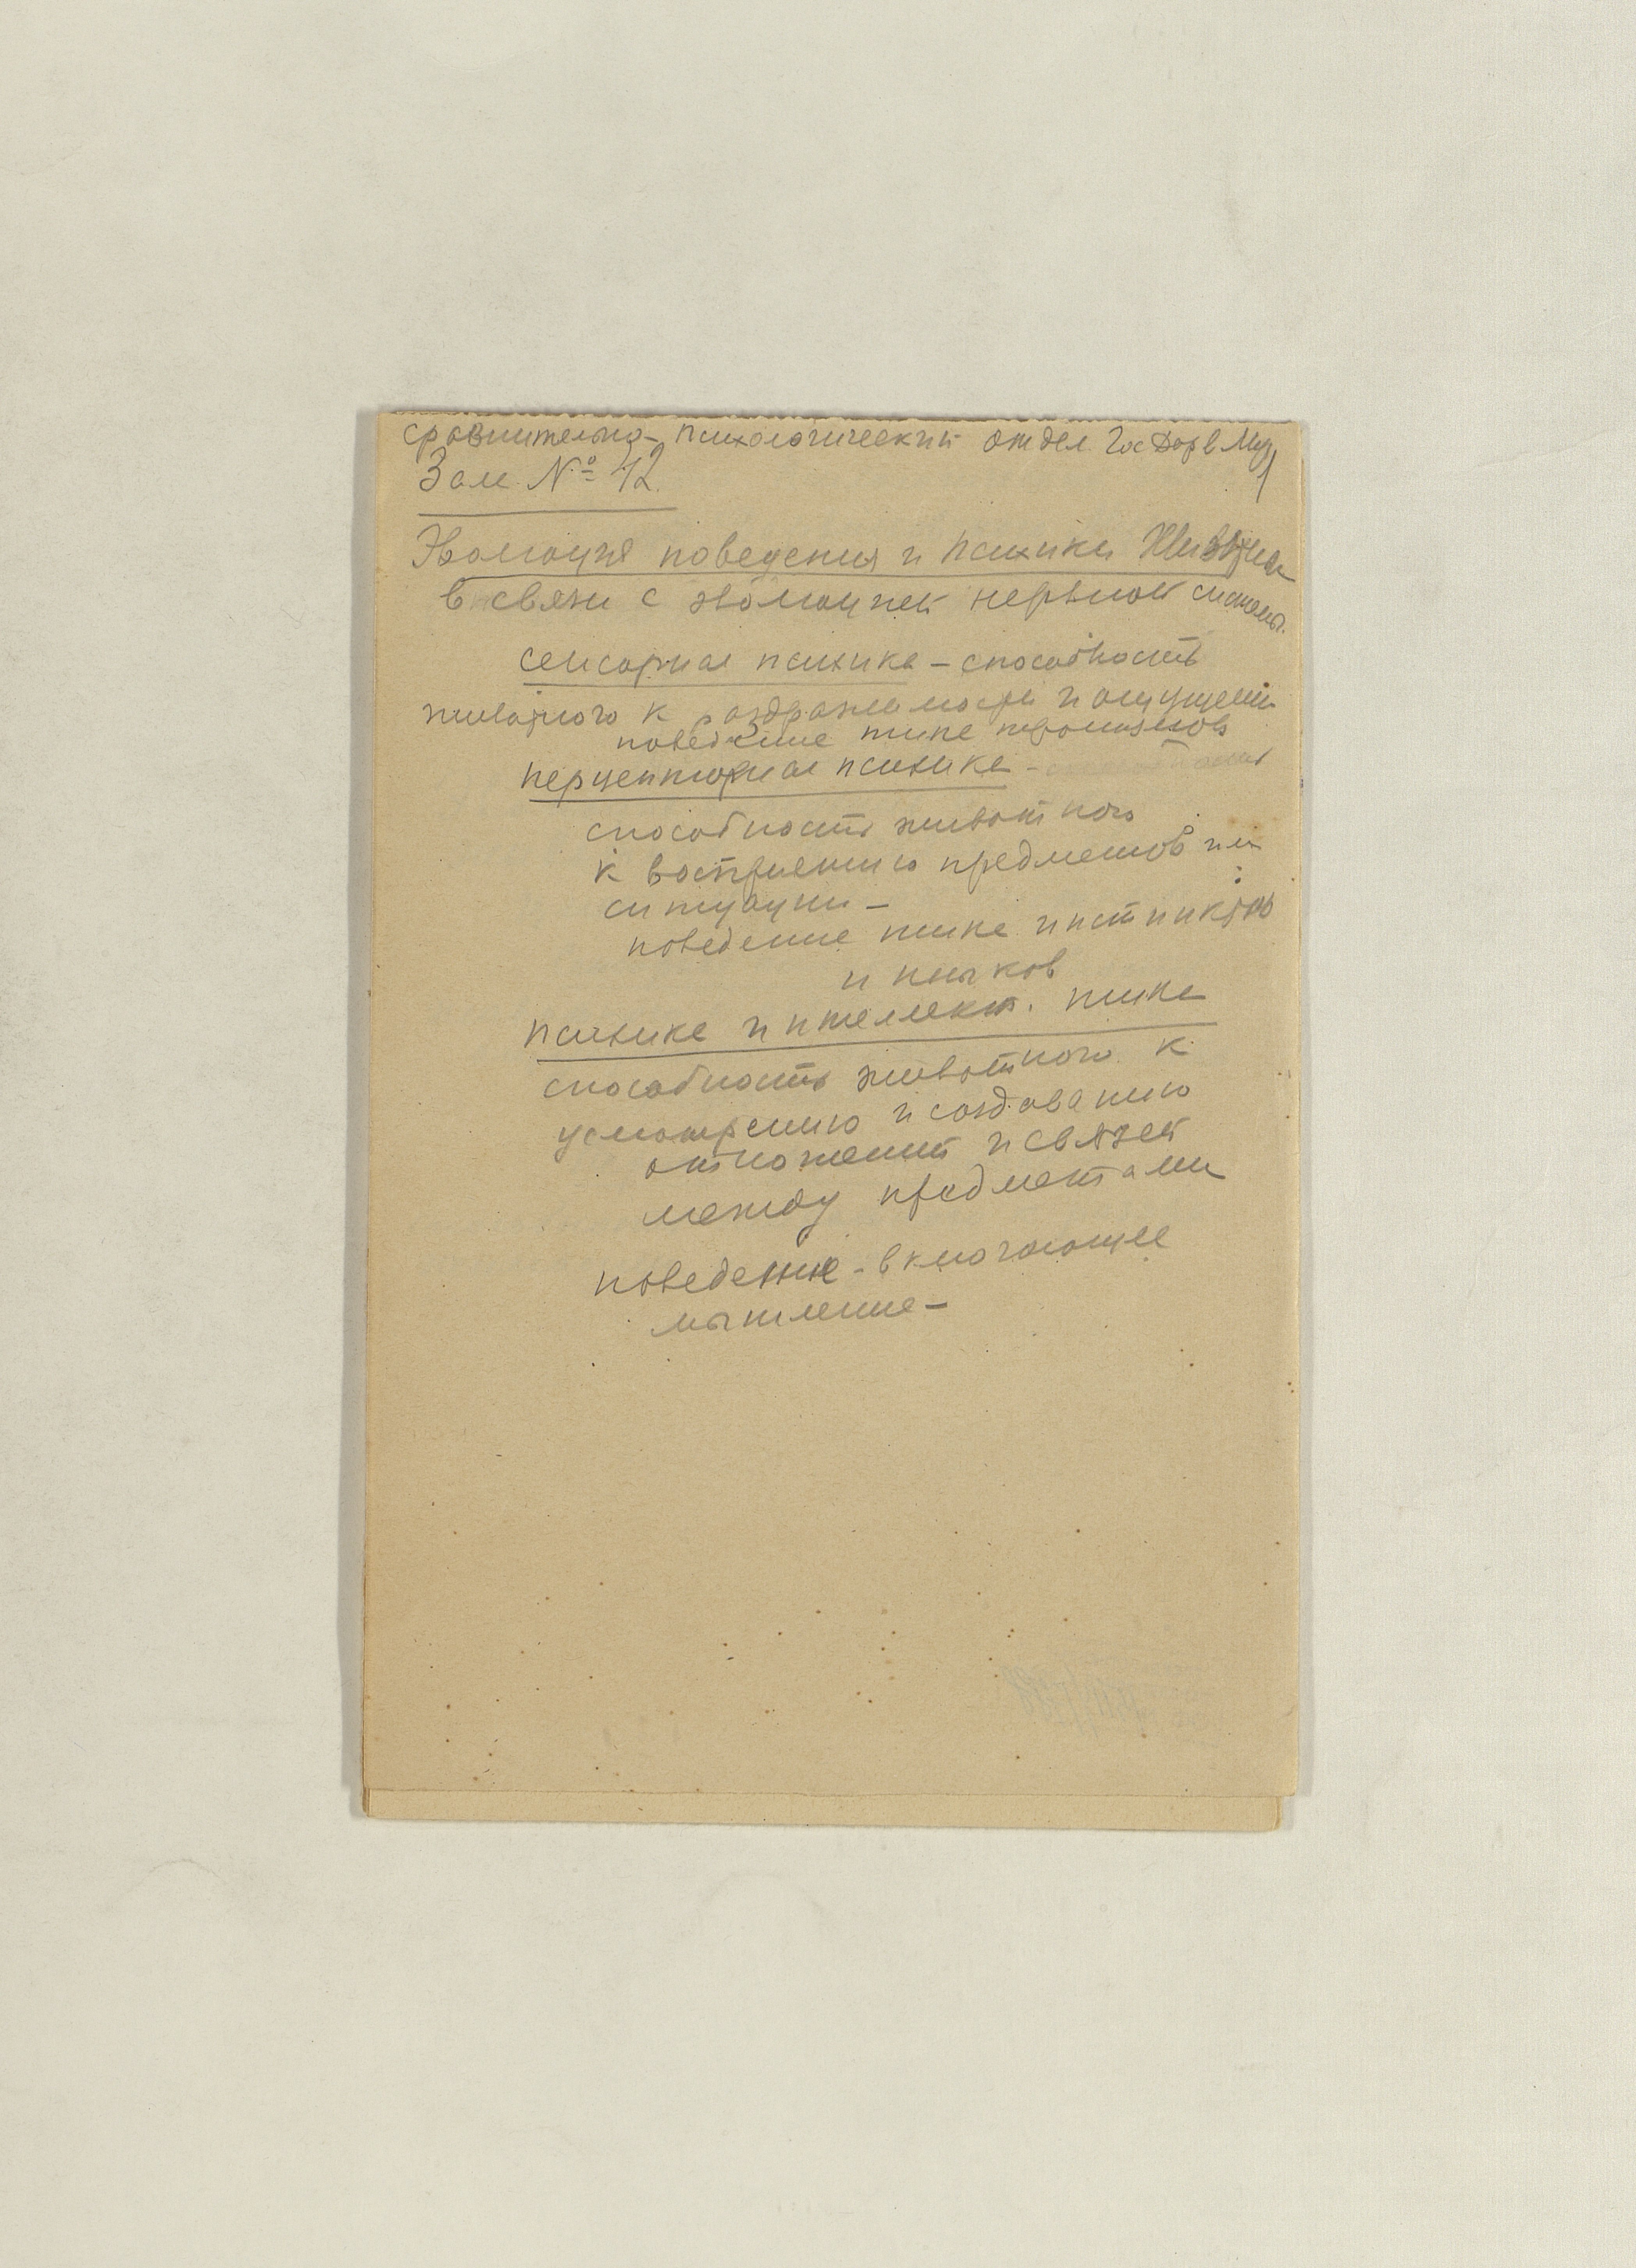 сравнительно-психологический отдел Гос Дарв Муз
Зал № 12
Эволюция поведения и психики животных
в связи с эволюцией нервной системы.
сенсорная психика – способность
животного к раздражимости и ощущени
поведение типа тропизмов
перцепторная психика –
способность животного
к восприятию предметов или
ситуации –
поведение типа инстинктов
и
психика интеллект. типа
способность животного к
усмотрению и создаванию
отношений и связей
между предметами
поведение – включающее
мышление –